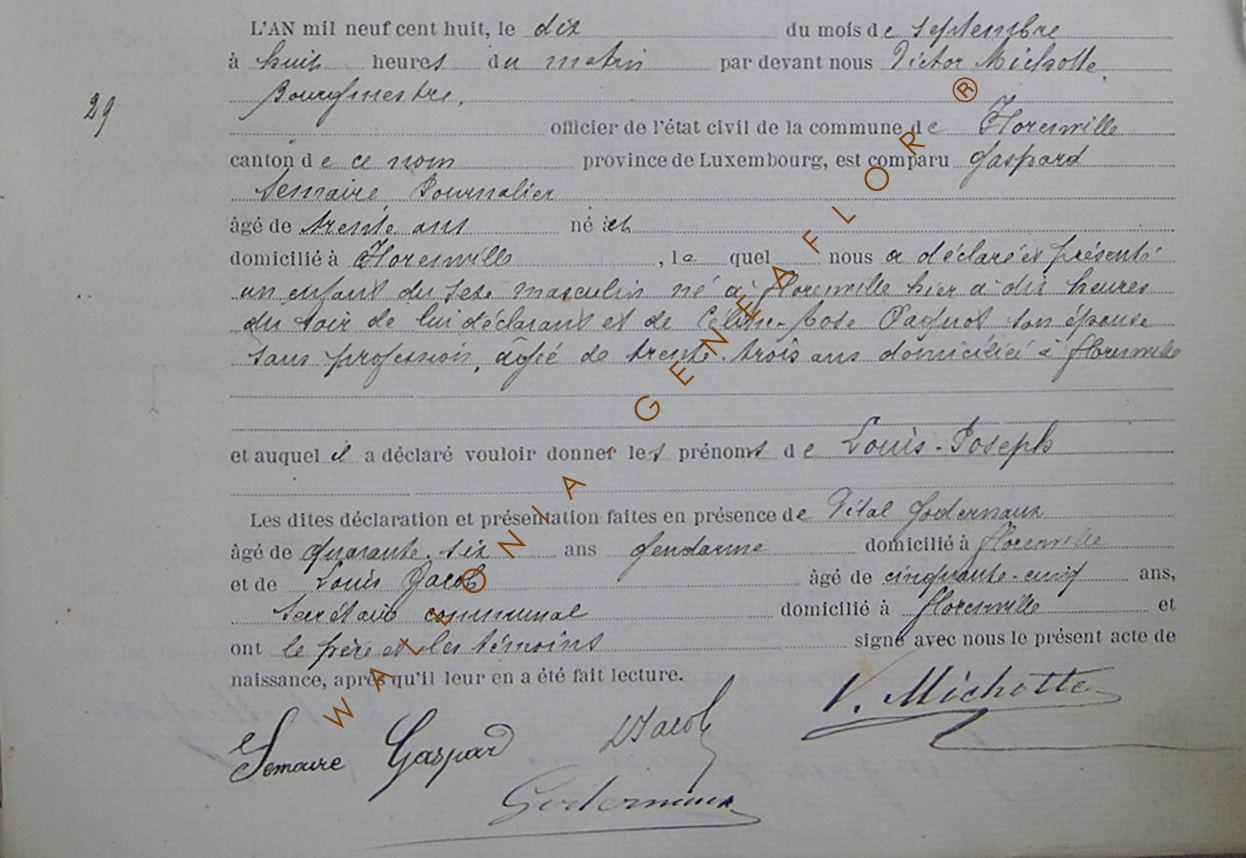 L'AN mil neuf cent huit, le dix du mois de septembre
à huit heures du matin par devant nous Victor Michotte,
Bourgmestre,
29
officier de l'état civil de la commune de Florenville
canton de ce nom province de Luxembourg, est comparu Gaspard
Semaire Journalier
âgé de trente ans né
domicilié à Florenville, le quel nous a déclaré et présenté
un enfant du sexe masculin né à Florenville hier à dix heures
du soir de lui déclarant et de Rose Paquot son épouse
sans profession, âgée de trente-trois ans domiciliée à Florenville
et auquel il a déclaré vouloir donner les prénoms de Louis-Joseph
Les dites déclaration et présentation faites en présence de Vital Godernaux
âgé de quarante-six ans gendarme domicilié à Florenville
et de Louis Jacob âgé de cinquante-cinq ans,
Secrétaire communal domicilié à Florenville et
ont le père et les témoins signé avec nous le présent acte de
naissance, après qu'il leur en a été fait lecture.
V. Michotte
Semaire Gaspard LJacob
Godernaux
WALLONIA-GENEAFLOR ®